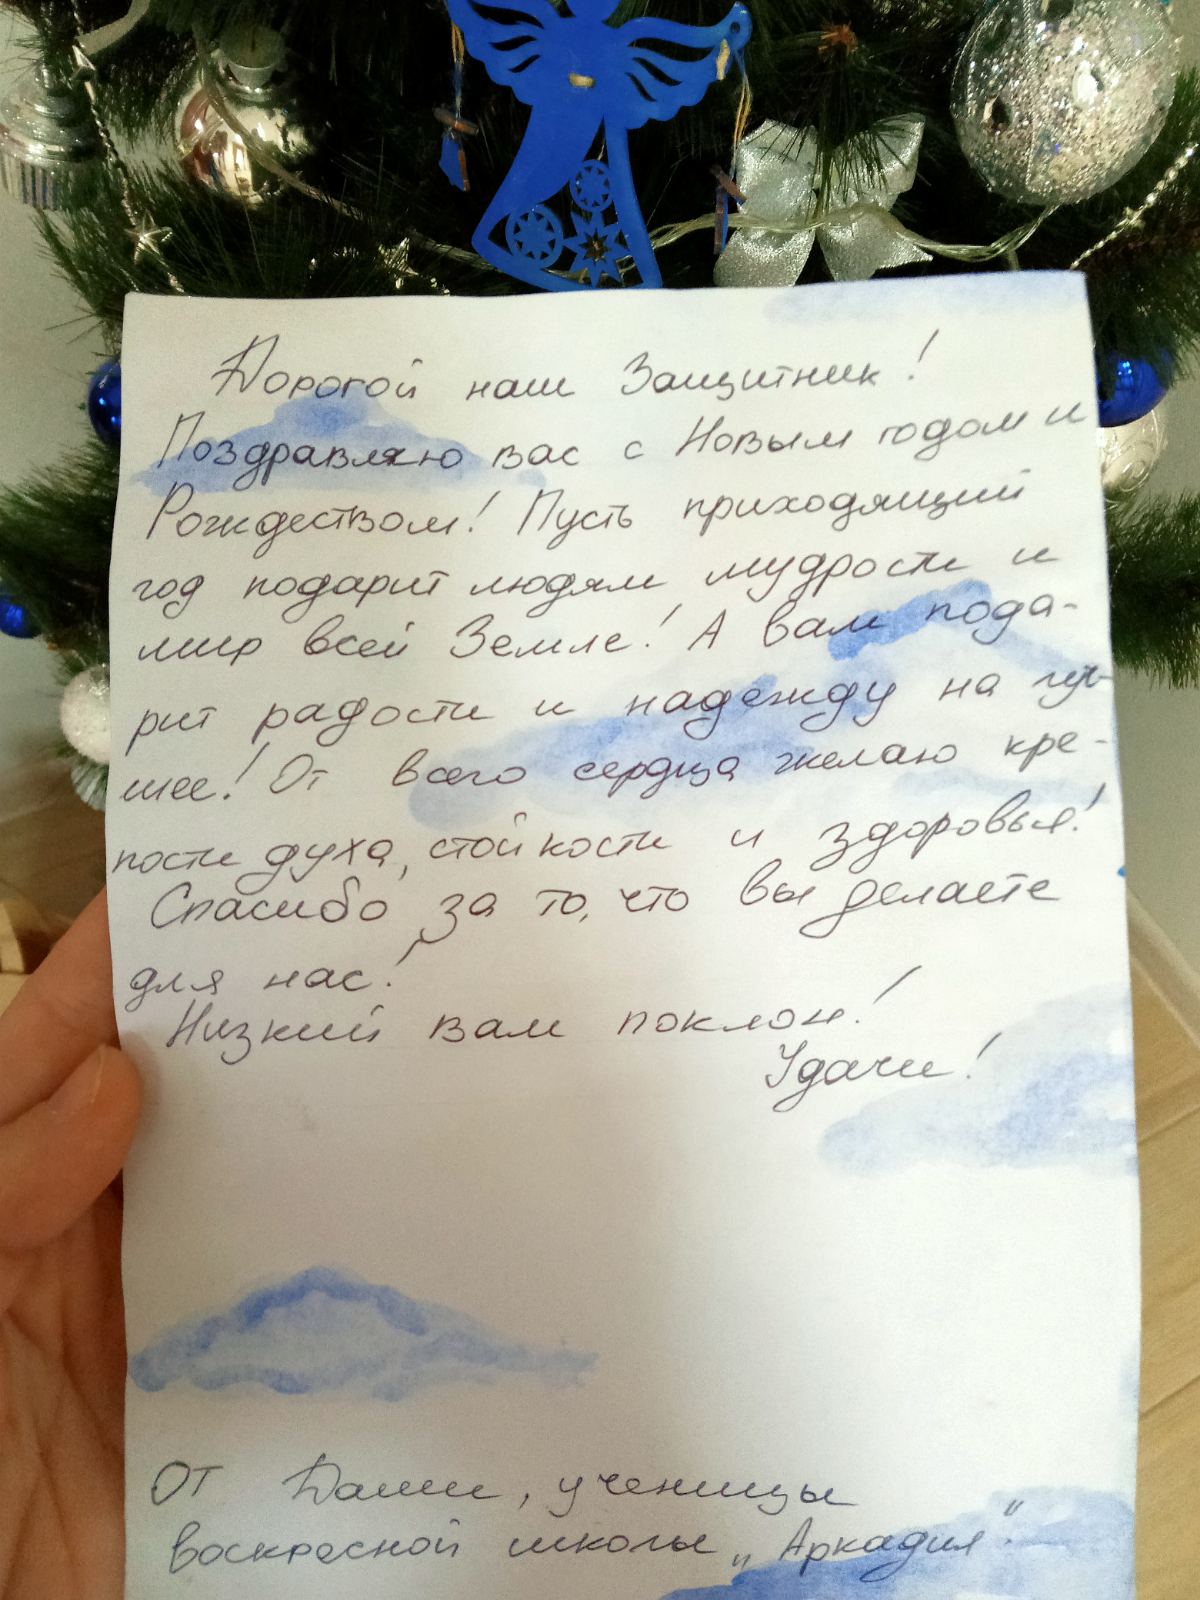 Дорогой наш Защитник!
Поздравляю вас с Новым годом и
Рождеством! Пусть приходящий
год подарит людям мудрости и
мир всей Земле! А вам пода-
рит радости и надежду на луч-
шее! От всего сердца желаю кре-
пости духа, стойкости и здоровья!
Спасибо за то, что вы делаете
для нас!
Низкий вам поклон!
Удачи!
От Даши, ученицы
воскресной школы „Аркадия".